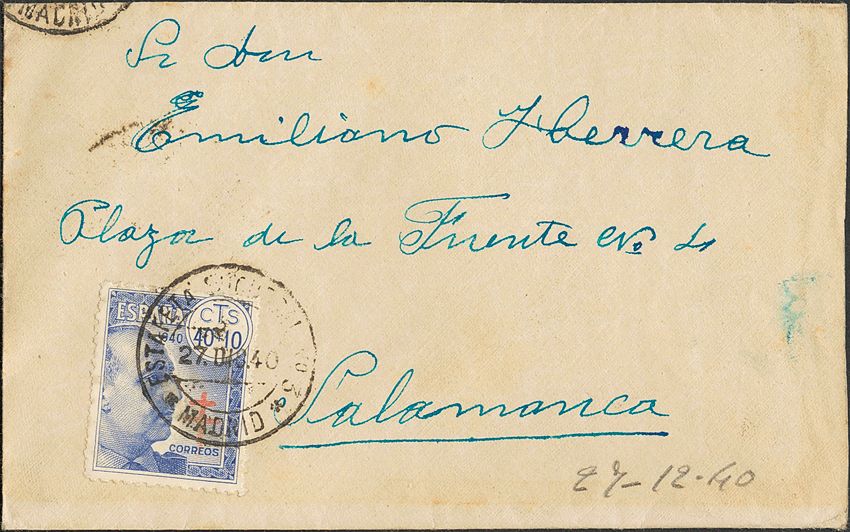 MADRID
Sr Don
Emiliano Herrera
Plaza de la Fuente No. 4
ESPAÑA
CTS
1940 40+10
ESTAFETA SUCURSAL No 3
27.DIC.40
MADRID
CORREOS
Salamanca
27-12-40